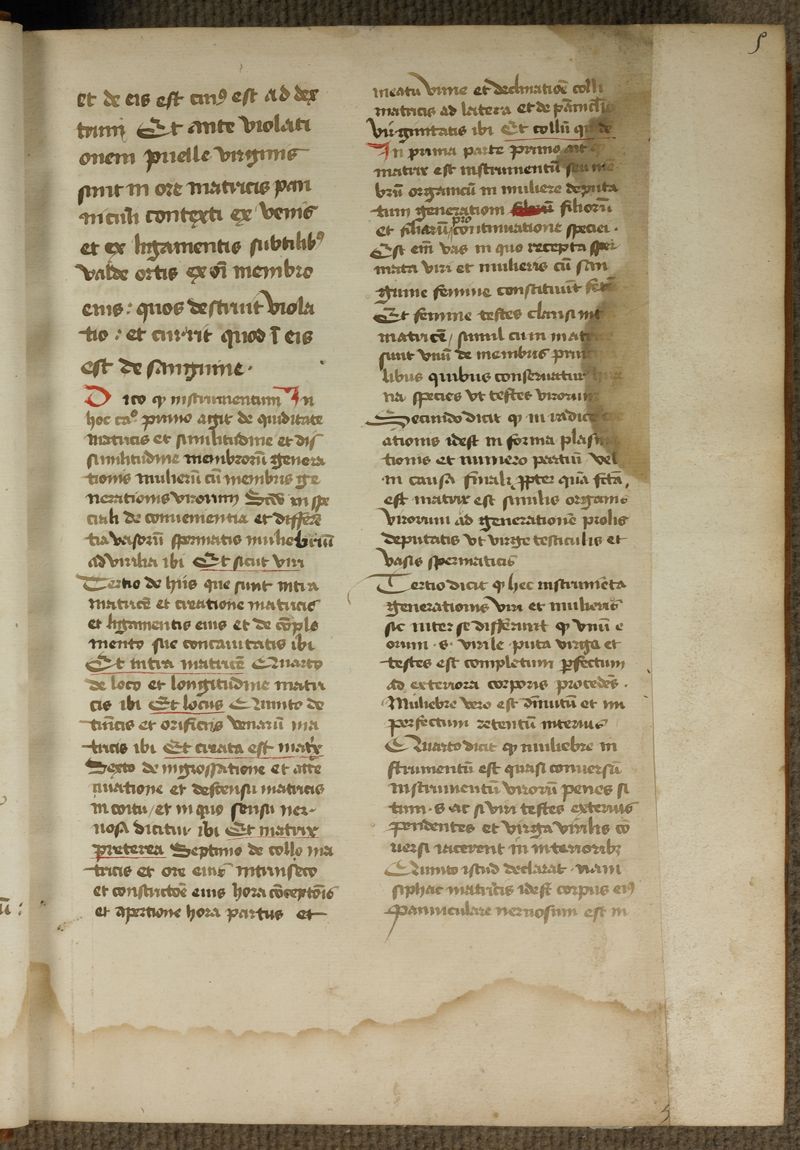 5
et de eis est eiꝰ est ad dex
trum Et ante violati
onem puelle virginis
sunt in ore matricis pan
niculi contexti ex venis
et ex ligamentis subtilibꝰ
valde ortis ex oī membro
eius : quos destruit viola
tio : et currit quod ī eis
est de sanguine .
Dico ꝙ instrumentum In
hoc caº primo agit de quiditate
matricis et similitudine et dis
similitudine membrorū genera
tionis mulierū cū membris ge
nerationis virorum Scdo in spe
ciali de conuenientia et differē
tia vasorū spermatis muliebriū
ad virilia ibi Et sicut viri
Tertio de hiis que sunt intra
matricē et creatione matricis
et ligamentis eius et de cōple
mento sue concauitatis ibi
Et intra matricē Quarto
de loco et longitudine matri
cis ibi Et locus Quinto de
tunicis et orificiis venarū ma
tricis ibi Et creata est matrix
Sexto de ingrossatione et atte
nuatione et descensu matricis
in coitu / et in quo sensu ner-
uosa dicitur ibi Et matrix
preterea Septimo de collo ma
tricis et ore eius intrinseco
et constrictōe eius hora cōceptōis
et apertione hora partus et
meatu vrine et declinatiōe colli
matricis ad latera et de pāniculo
virginitatis ibi Et collū
In prima parte primo ait
matrix est instrumentū seu mē
brū organicū in muliere deputa
tum generationi filiorū
et filiarū pro continuatione speciei .
Est em̄ vas in quo recepta sper
mata viri et mulieris cū san
guine femine constituūt
Et femine testes clausi
matricē / simul cum
sunt vnū de membris prin
libus quibus conseruatur
na species vt testes virorum
Secundo dicit ꝙ in radice
ationis idest in forma plas
tionis et numero partiū vel
in causa finali ꝓpter quā fcā
est matrix est similis organo
virorum ad generationē prolis
deputatis vt virge testiculis et
vasis spermaticis
Tertio dicit ꝙ hec instrumēta
generationis viri et mulieris
sic inter se differunt ꝙ vnū e
orum .s. virile puta virga et
testes est completum perfectum
ad exteriora corporis procedēs .
Muliebre vero est dīnutū et im
perfectum retentū interius
Quarto dicit ꝙ muliebre in
strumentū est quasi conuersū
instrumentū virorū penes si
tum .s. ac si viri testes exterius
pendentes et virga virilis cō
uersi iacerent in interioribꝫ
Quinto istud declarat . nam
siphac matricis idest corpus eiꝰ
panniculare neruosum est in